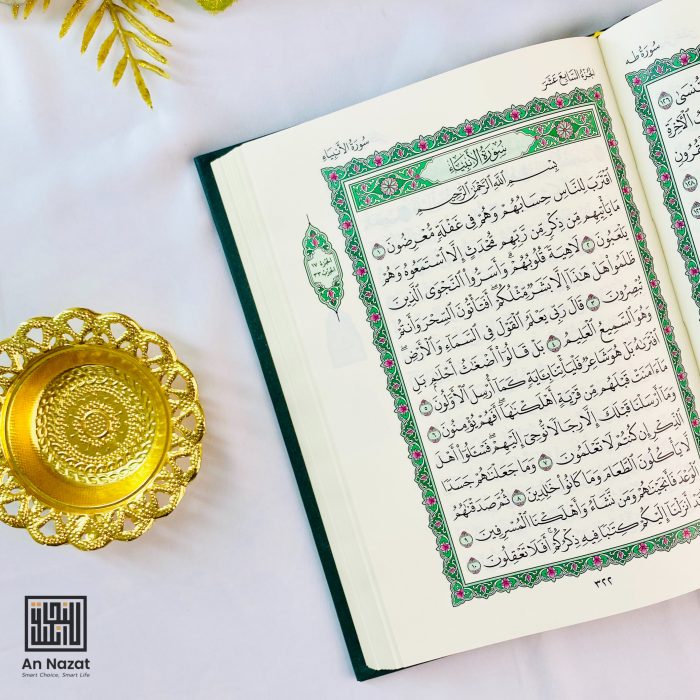 سُورَةُ طه
الجُزْءُ السَّابِعَ عَشَرَ
سُورَةُ الأَنبِيَاءِ
سُورَةُ الأَنبِيَاءِ
بِسْمِ اللَّهِ الرَّحْمَٰنِ الرَّحِيمِ
ٱقْتَرَبَ لِلنَّاسِ حِسَابُهُمْ وَهُمْ فِى غَفْلَةٍ مُّعْرِضُونَ ١
مَا يَأْتِيهِم مِّن ذِكْرٍ مِّن رَّبِّهِم مُّحْدَثٍ إِلَّا ٱسْتَمَعُوهُ وَهُمْ
يَلْعَبُونَ ٢ لَاهِيَةً قُلُوبُهُمْ ۗ وَأَسَرُّوا۟ ٱلنَّجْوَى ٱلَّذِينَ
ظَلَمُوا۟ هَلْ هَٰذَآ إِلَّا بَشَرٌ مِّثْلُكُمْ ۖ أَفَتَأْتُونَ ٱلسِّحْرَ وَأَنتُمْ
تُبْصِرُونَ ٣ قَالَ رَبِّى يَعْلَمُ ٱلْقَوْلَ فِى ٱلسَّمَآءِ وَٱلْأَرْضِ
وَهُوَ ٱلسَّمِيعُ ٱلْعَلِيمُ ٤ بَلْ قَالُوٓا۟ أَضْغَٰثُ أَحْلَٰمٍۭ بَلِ
ٱفْتَرَىٰهُ بَلْ هُوَ شَاعِرٌ فَلْيَأْتِنَا بِـَٔايَةٍ كَمَآ أُرْسِلَ ٱلْأَوَّلُونَ ٥
مَآ ءَامَنَتْ قَبْلَهُم مِّن قَرْيَةٍ أَهْلَكْنَٰهَآ ۖ أَفَهُمْ يُؤْمِنُونَ ٦
وَمَآ أَرْسَلْنَا قَبْلَكَ إِلَّا رِجَالًا نُّوحِىٓ إِلَيْهِمْ ۖ فَسْـَٔلُوٓا۟ أَهْلَ
ٱلذِّكْرِ إِن كُنتُمْ لَا تَعْلَمُونَ ٧ وَمَا جَعَلْنَٰهُمْ جَسَدًا
لَّا يَأْكُلُونَ ٱلطَّعَامَ وَمَا كَانُوا۟ خَٰلِدِينَ ٨ ثُمَّ صَدَقْنَٰهُمُ
ٱلْوَعْدَ فَأَنجَيْنَٰهُمْ وَمَن نَّشَآءُ وَأَهْلَكْنَا ٱلْمُسْرِفِينَ ٩
أَنزَلْنَآ إِلَيْكُمْ كِتَٰبًا فِيهِ ذِكْرُكُمْ ۖ أَفَلَا تَعْقِلُونَ ١٠
٣٢٢
الجزء ١٧
الحزب ٣٣
An Nazat
Smart Choice, Smart Life